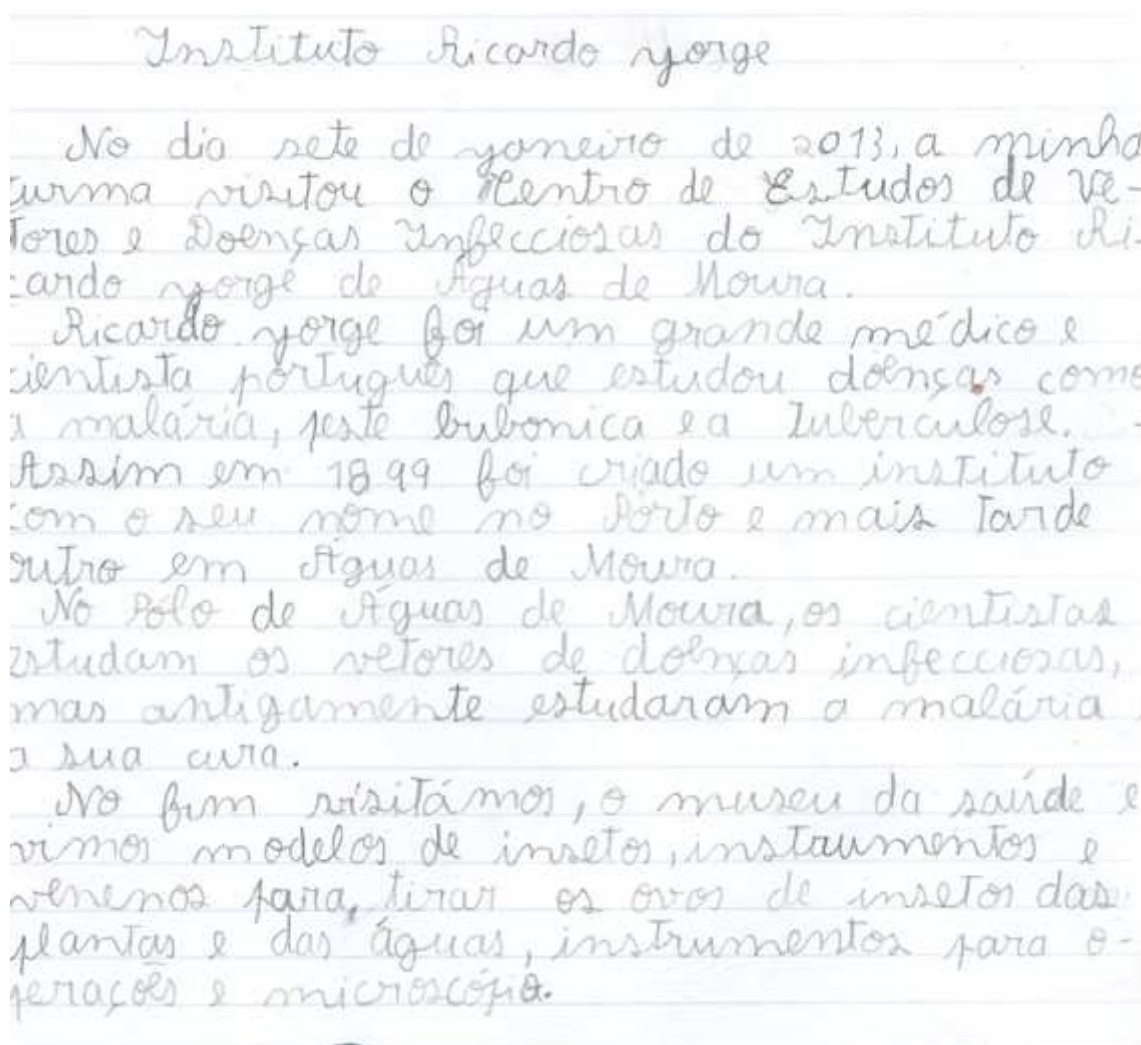 Instituto Ricardo Jorge
No dia sete de janeiro de 2013, a minha
turma visitou o Centro de Estudos de Ve-
tores e Doenças Infecciosas do Instituto Ri-
cardo Jorge de Águas de Moura.
Ricardo Jorge foi um grande médico e
cientista português que estudou doenças como
a malária, peste bubonica e a Tuberculose.
Assim em 1899 foi criado um instituto
com o seu nome no Porto e mais tarde
outro em Águas de Moura.
No Pólo de Águas de Moura, os cientistas
estudam os vetores de doenças infecciosas,
mas antigamente estudaram a malária
a sua cura.
No fim visitámos, o museu da saúde e
vimos modelos de insetos, instrumentos e
venenos para, tirar os ovos de insetos das
plantas e das águas, instrumentos para o-
perações e microscópio.